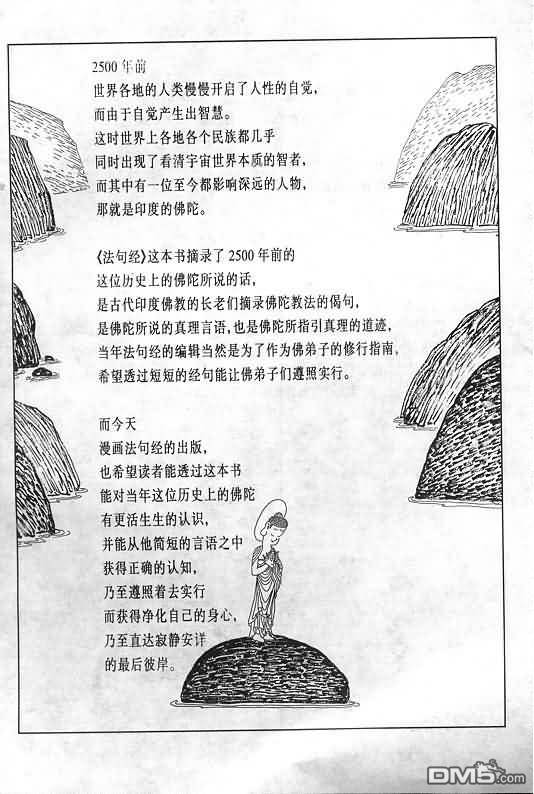 2500 年前
世界各地的人类慢慢开启了人性的自觉，
而由于自觉产生出智慧。
这时世界上各地各个民族都几乎
同时出现了看清宇宙世界本质的智者，
而其中有一位至今都影响深远的人物，
那就是印度的佛陀。
《法句经》这本书摘录了 2500 年前的
这位历史上的佛陀所说的话，
是古代印度佛教的长老们摘录佛陀教法的偈句，
是佛陀所说的真理言语，也是佛陀所指引真理的道迹，
当年法句经的编辑当然是为了作为佛弟子的修行指南，
希望透过短短的经句能让佛弟子们遵照实行。
而今天
漫画法句经的出版，
也希望读者能透过这本书
能对当年这位历史上的佛陀
有更活生生的认识，
并能从他简短的言语之中
获得正确的认知，
乃至遵照着去实行
而获得净化自己的身心，
乃至直达寂静安详
的最后彼岸。
DM5.com